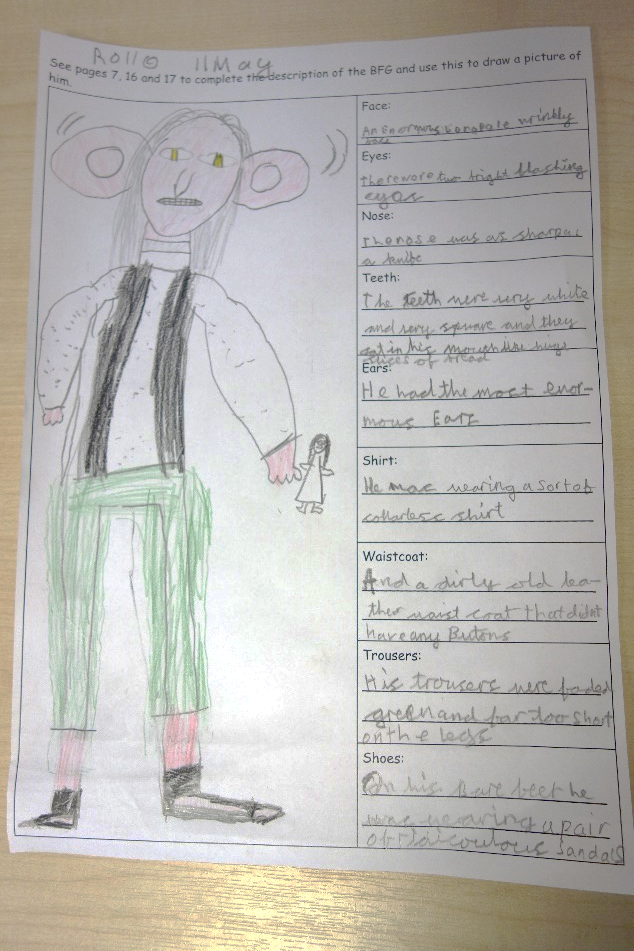 Rollo 11 May
See pages 7, 16 and 17 to complete the description of the BFG and use this to draw a picture of
him.
Face:
An Enormous Long Pale wrinkly
face
Eyes:
there wore two bright flashing
eyes
Nose:
The nose was as sharp as
a knife
Teeth:
The teeth were very white
and very square and they
sat in his mouth like huge
slices of bread
Ears:
He had the most enor-
mous Ears
Shirt:
He was wearing a sort of
collarless shirt
Waistcoat:
And a dirty old lea-
ther waist coat that didnt
have any Butons
Trousers:
His trousers were faded
green and far too short
on the legs
Shoes:
On his Bare feet he
was wearing a pair
of ridiculous Sandals